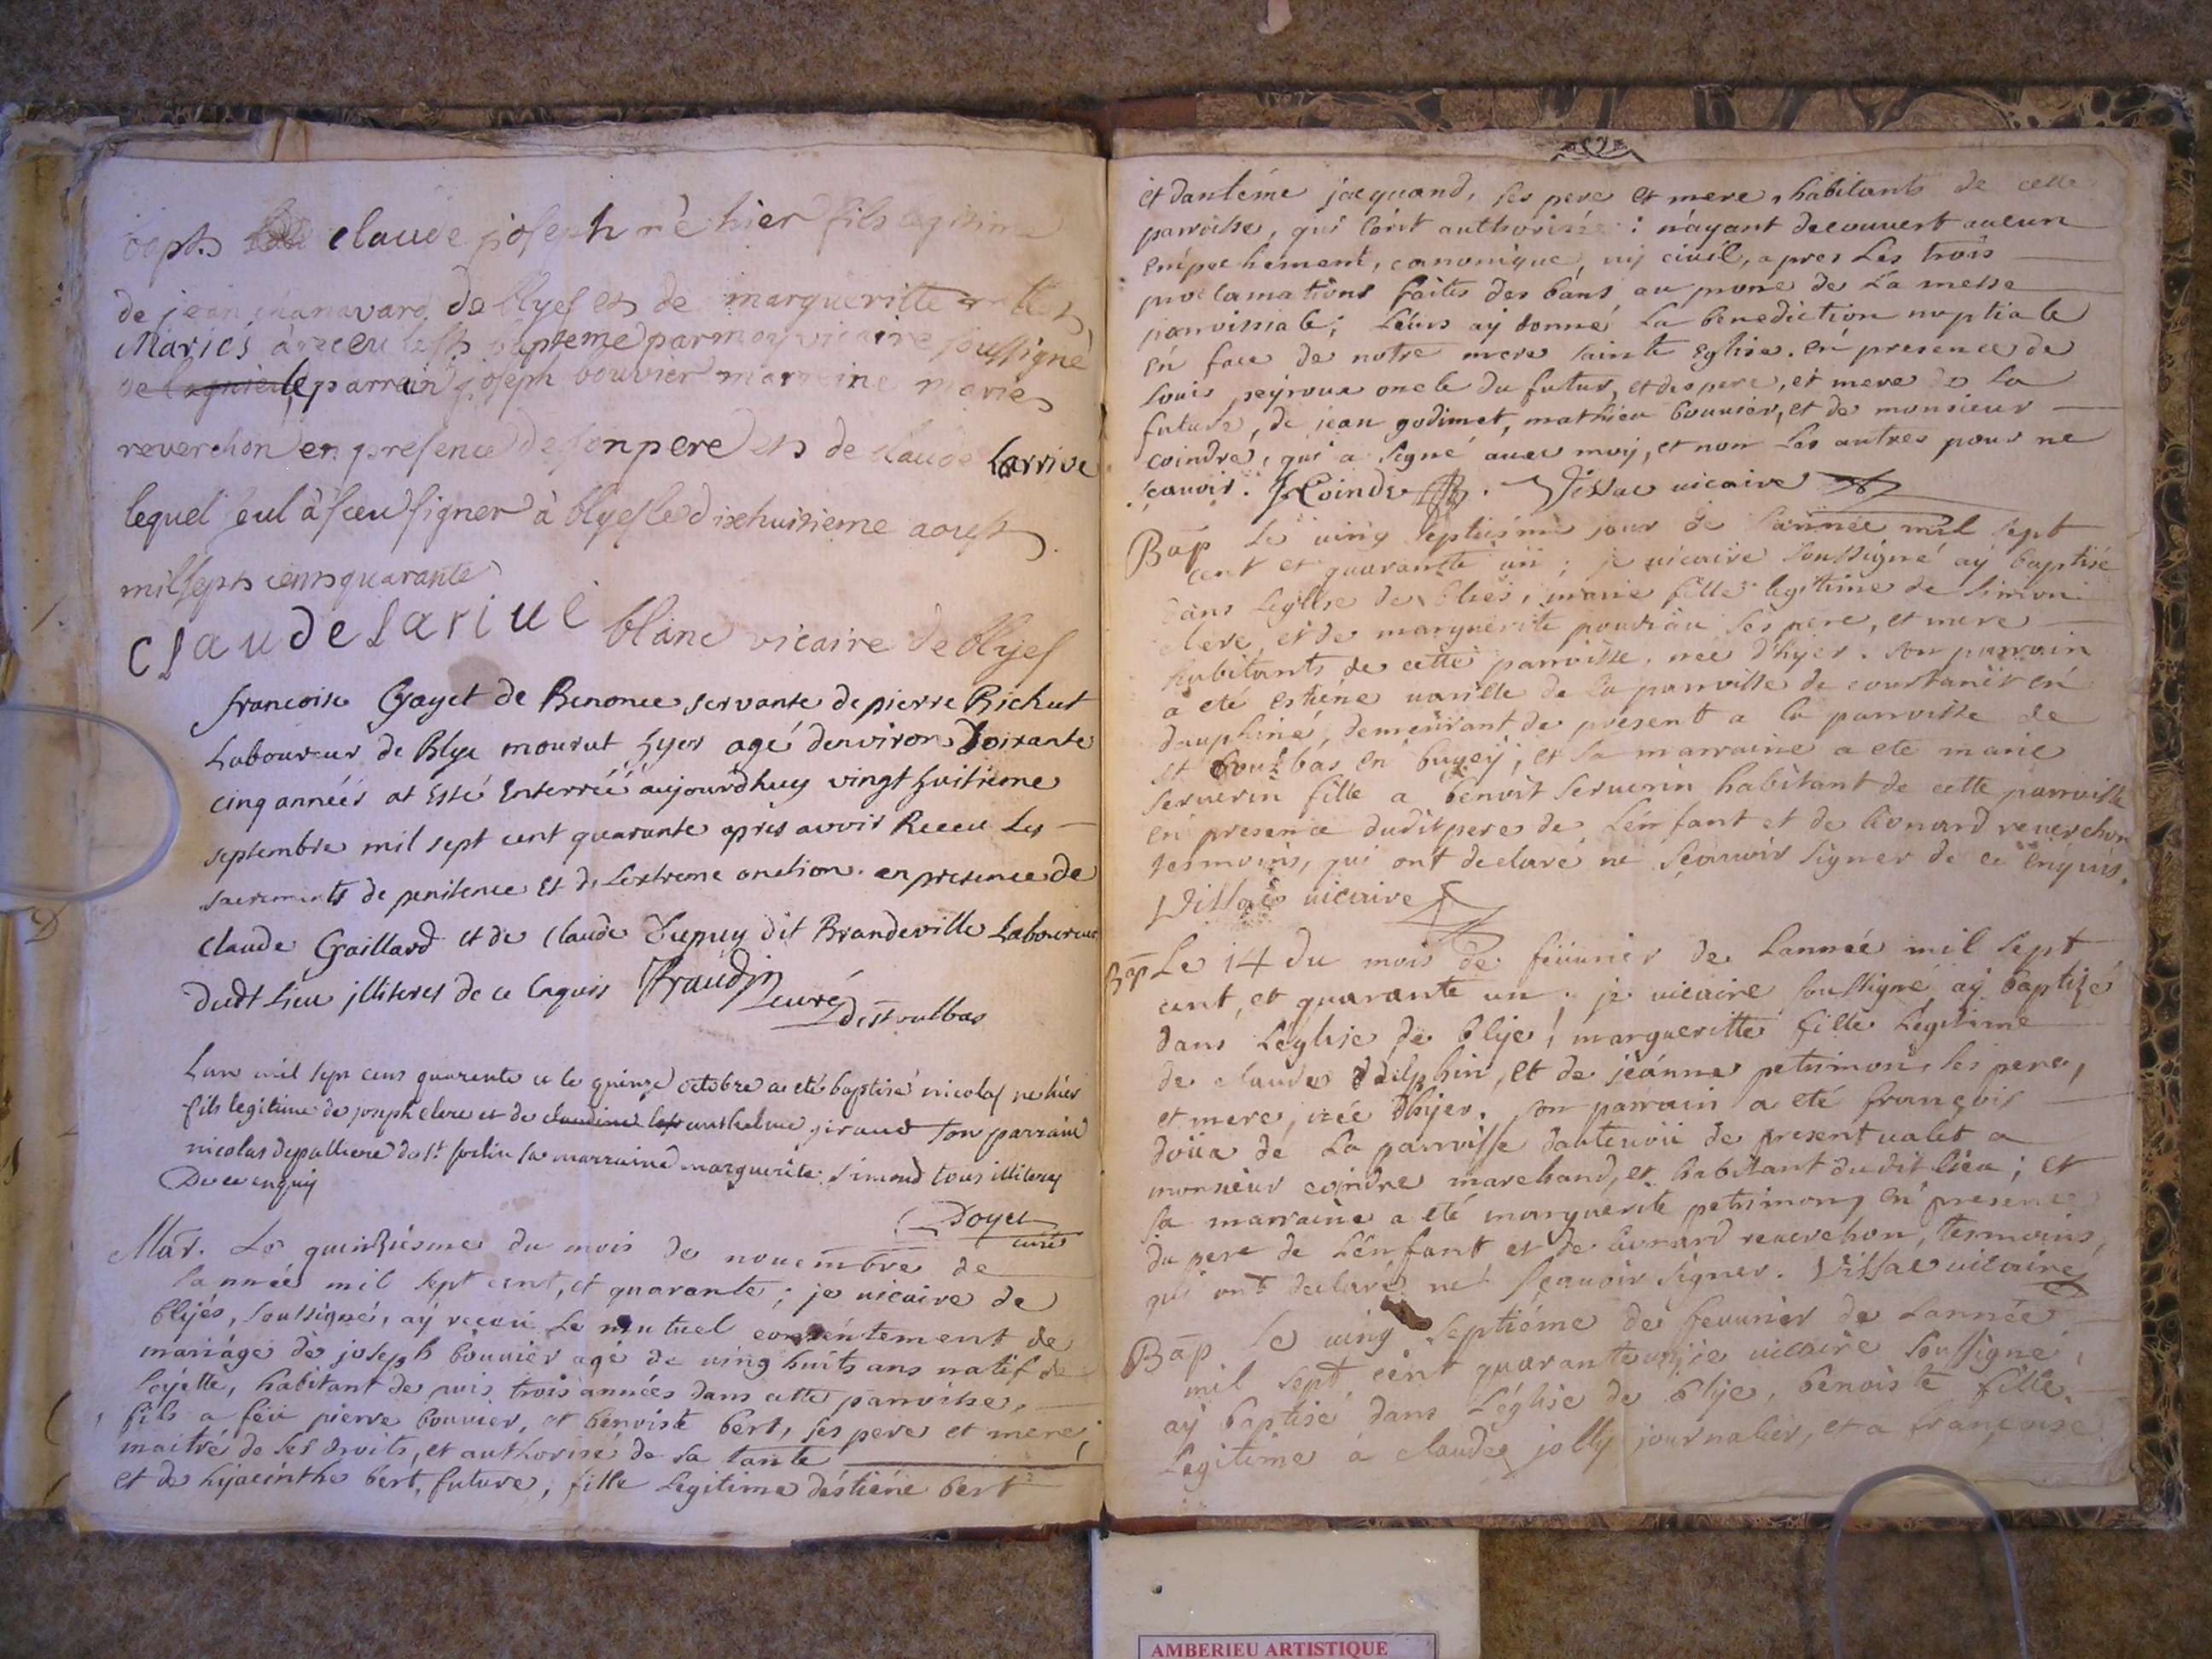 claude joseph né hier fils legitime
de jean de blyes et de margueritte
Mariés a receu le st bapteme par moy vicaire soussigné
de lagnieu le parrain joseph bouvier marreine marie
reverchon en presence de son pere et de claude Larrive
lequel seul à sceu signer à blyes le dixhuitieme aoust
mil sept cents quarante
claude larive blanc vicaire de blyes
francoise Gayet de Benonce servante de pierre Richut
Laboureur de Blye mourut hyer agé denviron Soixante
cinq années at Esté Enterréé aujourdhuy vingt huitieme
septembre mil sept cent quarante apres avvoir Receu Les
sacrements de penitence Et de Lextreme onction. en presence de
claude Gaillard et de claude Dupuy dit Brandeville Laboureur
dudt Lieu illiteres de ce Enquis Praudin curé
de st vulbas
Lan mil sept cens quarente et le quinze octobre a eté baptisé nicolas ne hier
fils legitime de joseph clere et de claudine anthelme giraud son parrain
nicolas depalliere de st sorlin sa marraine marguerite simond tous illiteres
De ce enquis
Doyet
curé
Mar. Le quinziesme du mois de nouembre de
lannée mil sept cent, et quarante; je uicaire de
blyés, soussigné, aÿ receu le mutuel consentement de
mariáge de joseph bouuier agé de uing huits ans natif de
loyette, habitant depuis trois années dans cette parroisse,
fils a feu pierre bouuier, et benoiste bert, ses pere et mere,
maitré de ses droits, et authorisé de sa tante
et de hyacinthe bert, future, fille legitime déstiéne bert
et dantéme jacquand, ses pere et mere, habitants de cette
parroisse, qui lónt authorisée: n'áyant decouuert aucun
empechement, canonique, nÿ ciuil, apres les trois
proclamations faites des bans au prone de la messe
parroissiale; leurs aÿ donné la benediction nuptiale
en face de notre mere sainte eglise. en presence de
louis peyroux oncle du futur, et des pere, et mere de la
future, de jean godimet, mathieu bouuier, et de monsieur
coindre, qui a signé auec moy, et non les autres pour ne
scauoir. J Coindre. Vissac uicaire
Bap le uing septiesme jour de lannée mil sept
cent et quarante un; je uicaire soussigné aÿ baptisé
dans leglise de blies, marie fille legitime de simon
clere, et de marguerite ses pere, et mere
habitants de cette parroisse, née d'hyer. son parrain
a eté estiéne de la parroisse de en
dauphiné, demeurant de present a la parroisse de
st boulbas en bugey; et sa marraine a eté marie
seruerin fille a benoit seruerin habitant de cette parroisse
en presence dudit pere de lénfant et de léonard reuerchon
tesmoins, qui ont declaré ne scauoir signer de ce enquis.
Vissac uicaire
Bap Le 14 du mois de féurier de lannée mil sept
cent, et quarante un. je uicaire soussigné aÿ baptizé
dans léglise de blye, margueritte fille legitime
de claude delphin, et de jeánne petrimon, ses pere,
et mere, née dhyer. son parrain a eté françois
doüa de la parroisse de present ualet a
monsieur coindre marchand, et habitant dudit lieu; et
sa marraine a eté marguerite petrimon, en presence
du pere de lénfant et de léonard reuerchon, tesmoins,
qui ont declaré ne sçauoir signer. Vissac uicaire
Bap le uing septiéme de feurier de lannée
mil sept cent quarante un, je uicaire soussigne,
aÿ baptisé dans léglise de blye, benoiste fille
legitime a claude jolly journalier, et a françoise
AMBERIEU ARTISTIQUE